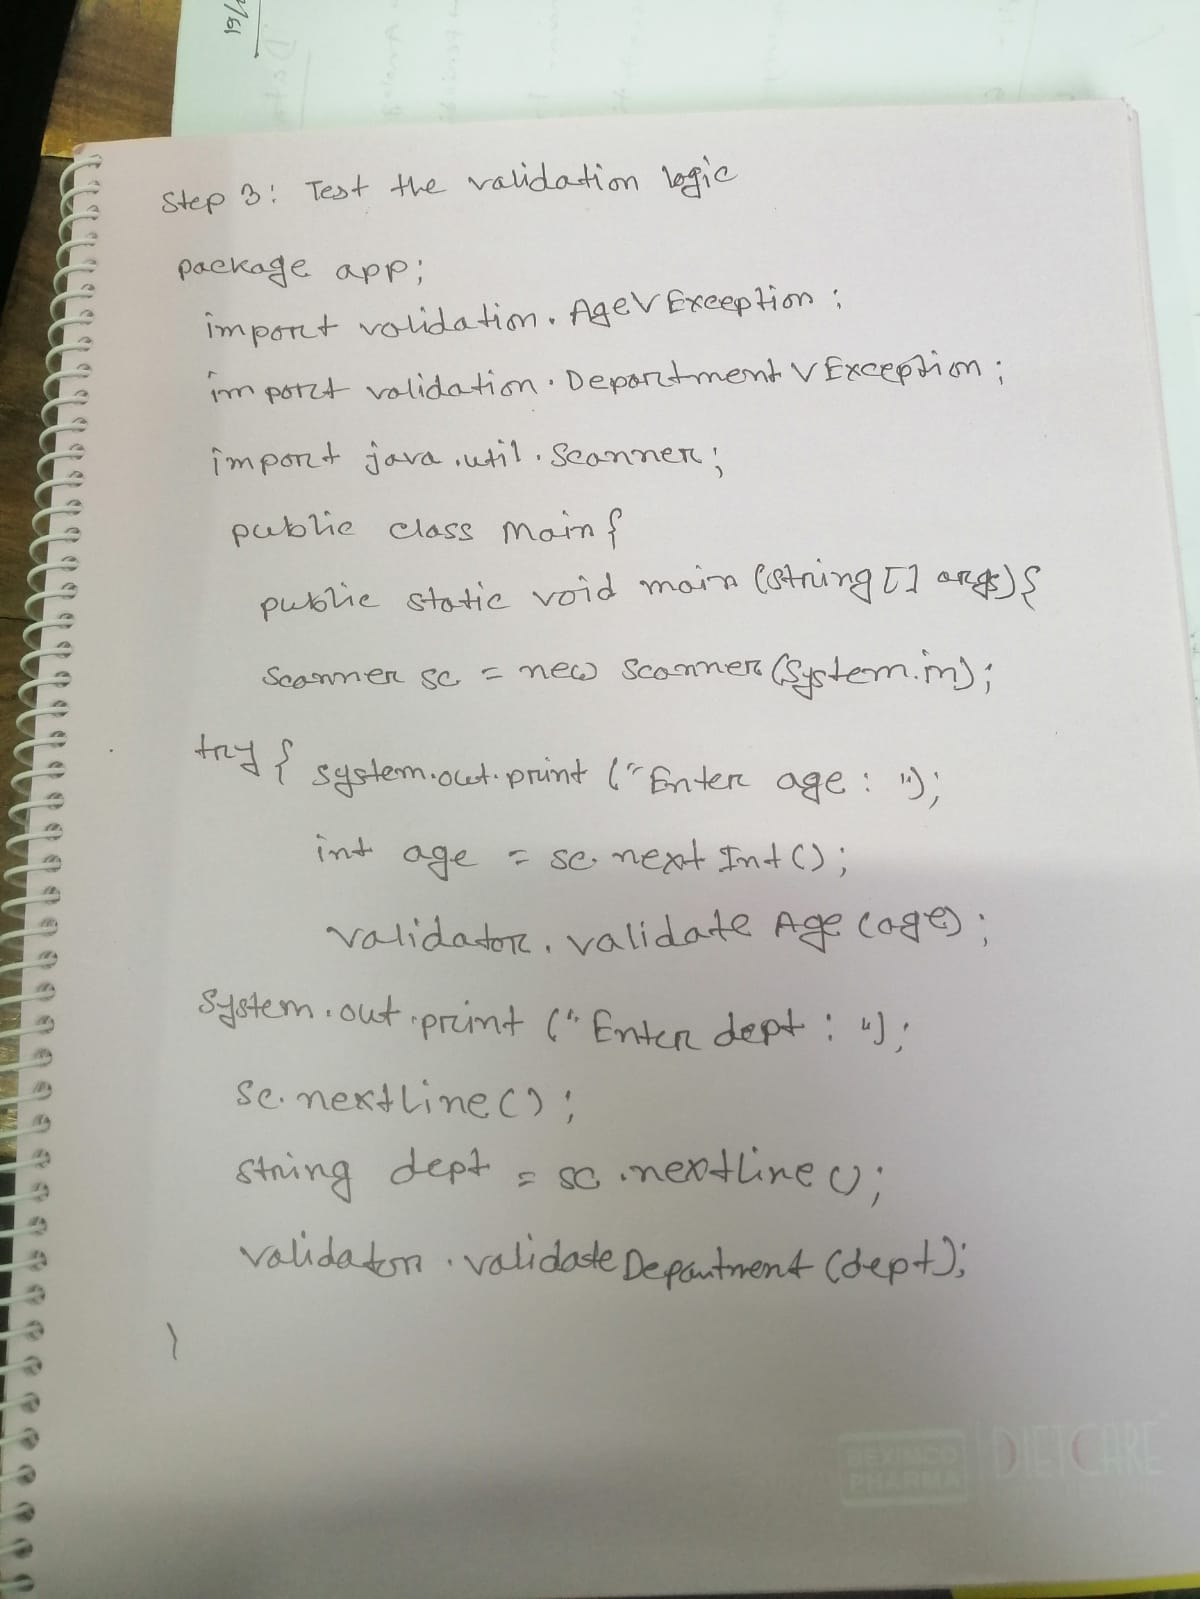 Step 3: Test the validation logic
package app;
import validation.AgeVException;
import validation.DepartmentVException;
import java.util.Scanner;
public class Main{
public static void main (string[] args){
Scanner sc = new Scanner(System.in);
try { system.out.print ("Enter age : ");
int age = sc.nextInt();
validator.validateAge(age);
System.out.print ("Enter dept : ");
sc.nextLine();
string dept = sc.nextLine();
validator.validateDepartment(dept);
}
BEXIMCO
PHARMA
DIETCARE